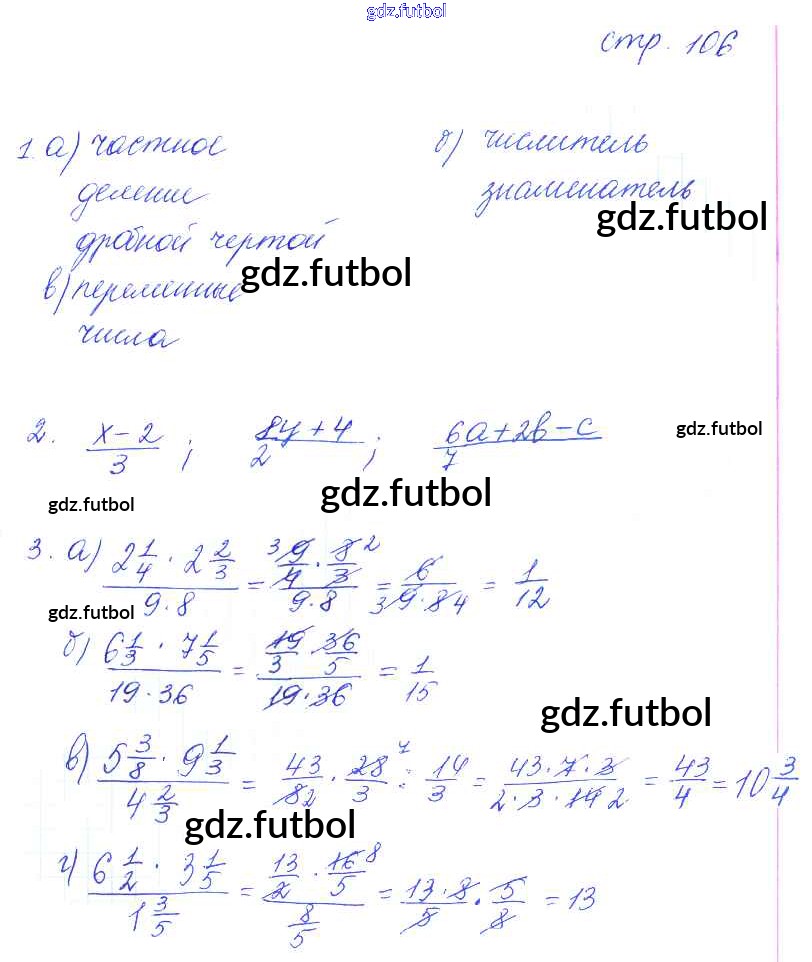 gdz.futbol
стр. 106
1. а) частное
деление
дробной чертой
б) числитель
знаменатель
gdz.futbol
gdz.futbol
в) переменные
числа
2. (x-2)/3 ; (8y+4)/2 ; (6a+2b-c)/7
gdz.futbol
gdz.futbol
gdz.futbol
3. а) (2 1/4 · 2 2/3)/(9·8) = (3 9/4 · 8/3 2)/(9·8) = 6/(3 9·8 4) = 1/12
gdz.futbol
б) (6 1/3 · 7 1/5)/(19·36) = (19/3 · 36/5)/(19·36) = 1/15
gdz.futbol
в) (5 3/8 · 9 1/3)/(4 2/3) = 43/82 · 28/3 7 : 14/3 = (43·7·3)/(2·3·14 2) = 43/4 = 10 3/4
gdz.futbol
г) (6 1/2 · 3 1/5)/(1 3/5) = (13/2 · 16/5 8)/(8/5) = (13·8)/5 · 5/8 = 13